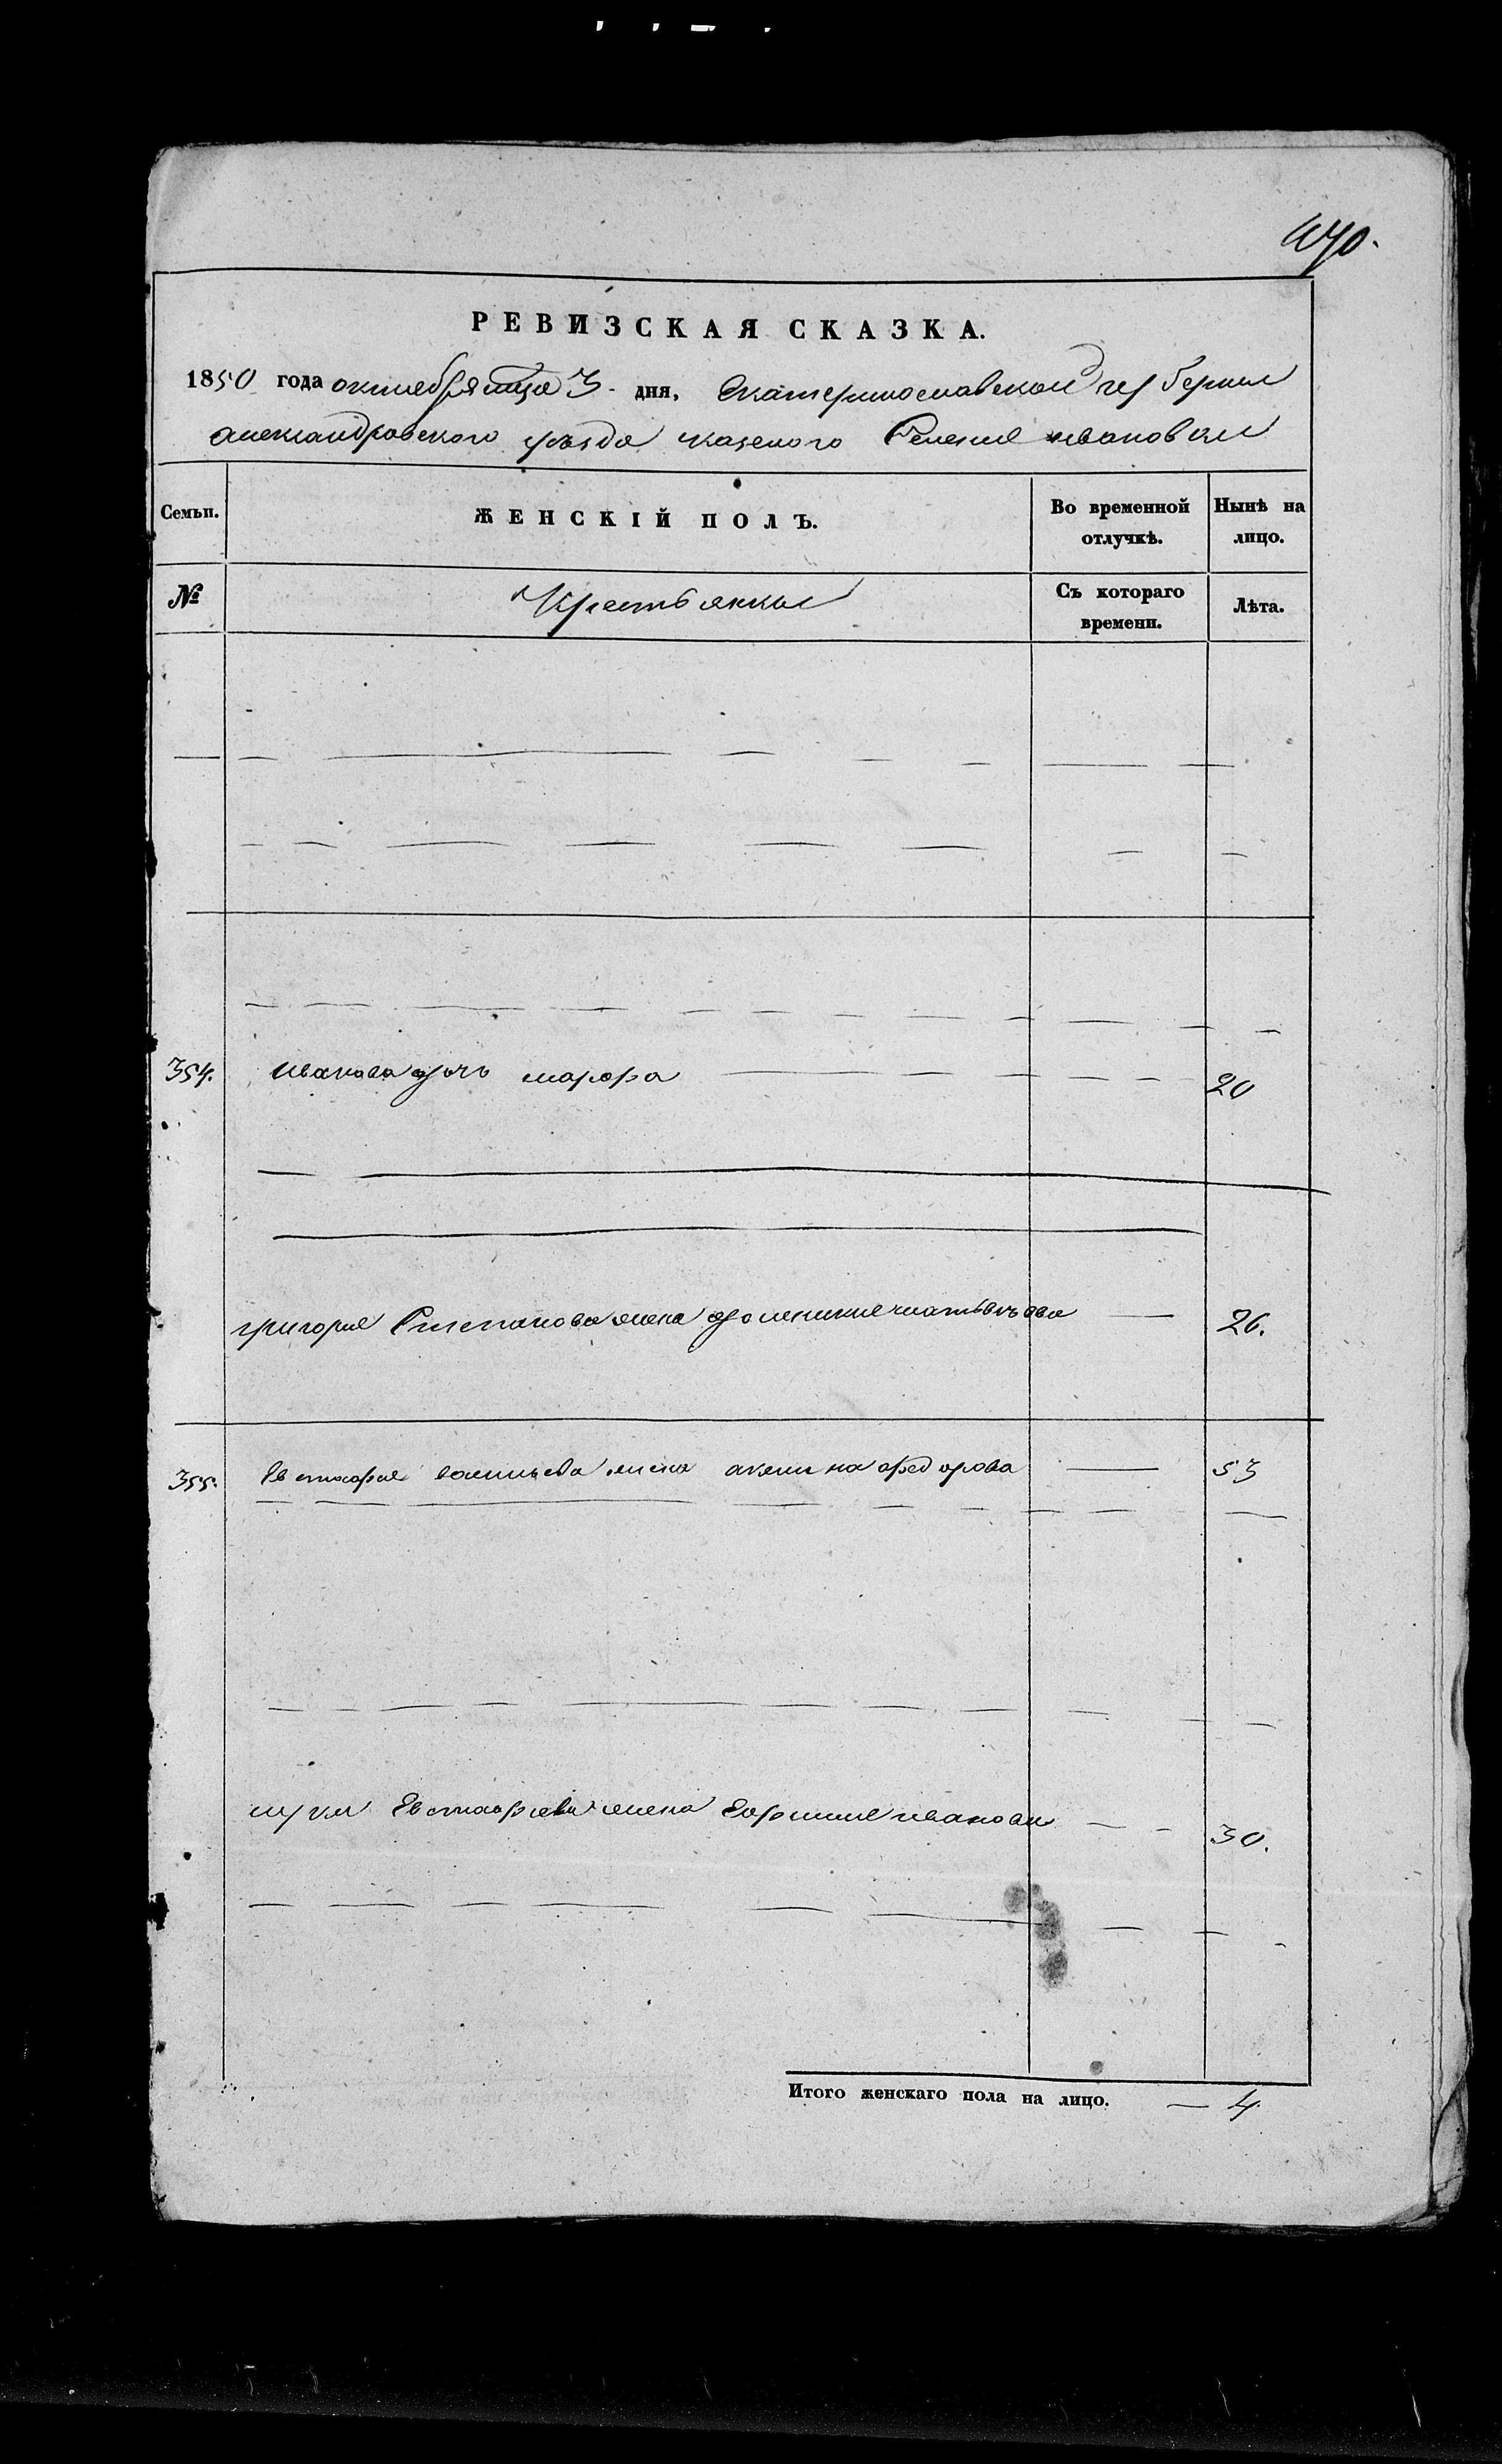 470.
РЕВИЗСКАЯ СКАЗКА.
1850 года октября мца 3 дня, Екатеринославской губернии
александровского уѣзда казеного Селения ивановки
Семьи. ЖЕНСКІЙ ПОЛЪ. Во временной отлучкѣ. Нынѣ на лицо.
№ Крестьянки Съ котораго времени. Лѣта.
354. Иванова дочь марфа 20
григория Степанова жена домникия 26.
355. Евстафия васильева жена акилина федорова 53
луки Евстафиева жена Ефимия иванова 30.
Итого женскаго пола на лицо. — 4